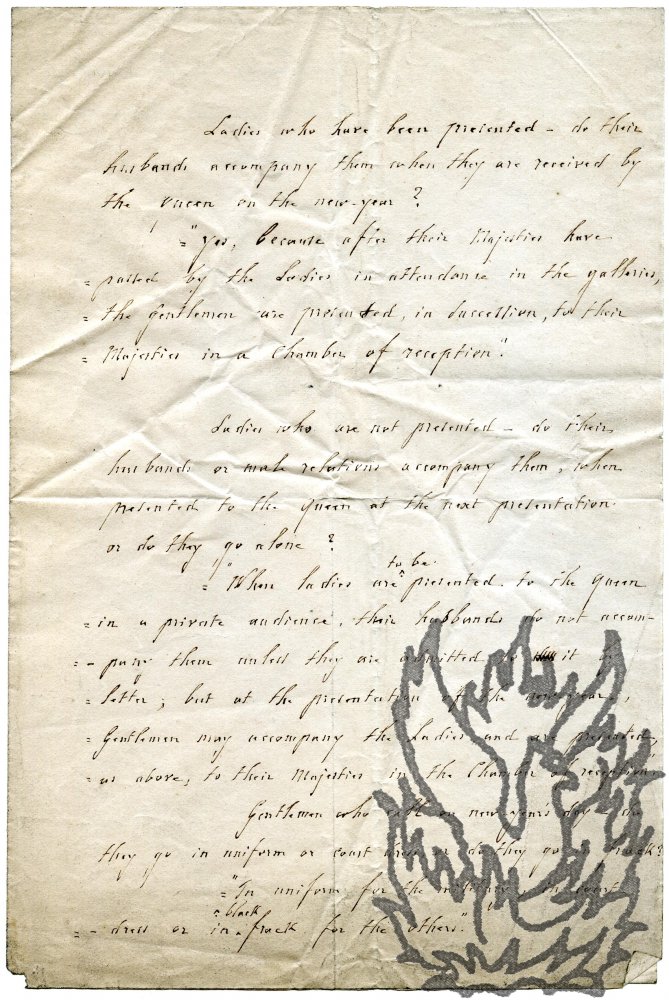 Ladies who have been presented – do their
husbands accompany them when they are received by
the Queen on the new-year?
= "Yes, because after their Majesties have
= passed by the Ladies in attendance in the galleries,
= the gentlemen are presented, in succession, to their
= Majesties in a Chamber of reception".
Ladies who are not presented – do their
husbands or male relations accompany them, when
presented to the Queen at the next presentation
or do they go alone?
= "When ladies are to be presented to the Queen
= in a private audience, their husbands do not accom-
= pany them unless they are admitted to it by
= letter; but at the presentation of the new-year,
= Gentlemen may accompany the Ladies and are presented,
= as above, to their Majesties in the Chamber of reception"
Gentlemen who call on new-year's day – do
they go in uniform or court dress or do they go in frock?
= "In uniform for the military, in court
= dress or in black frock for the others".